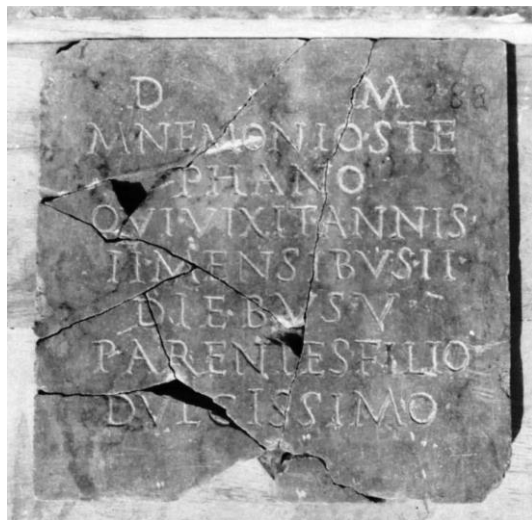 D M 288
MNEMONIO·STE
PHANO
QVI·VIXIT·ANNIS·
II·MENSIBVS·II·
DIEBVS·V·
PARENTES FILIO
DVLCISSIMO